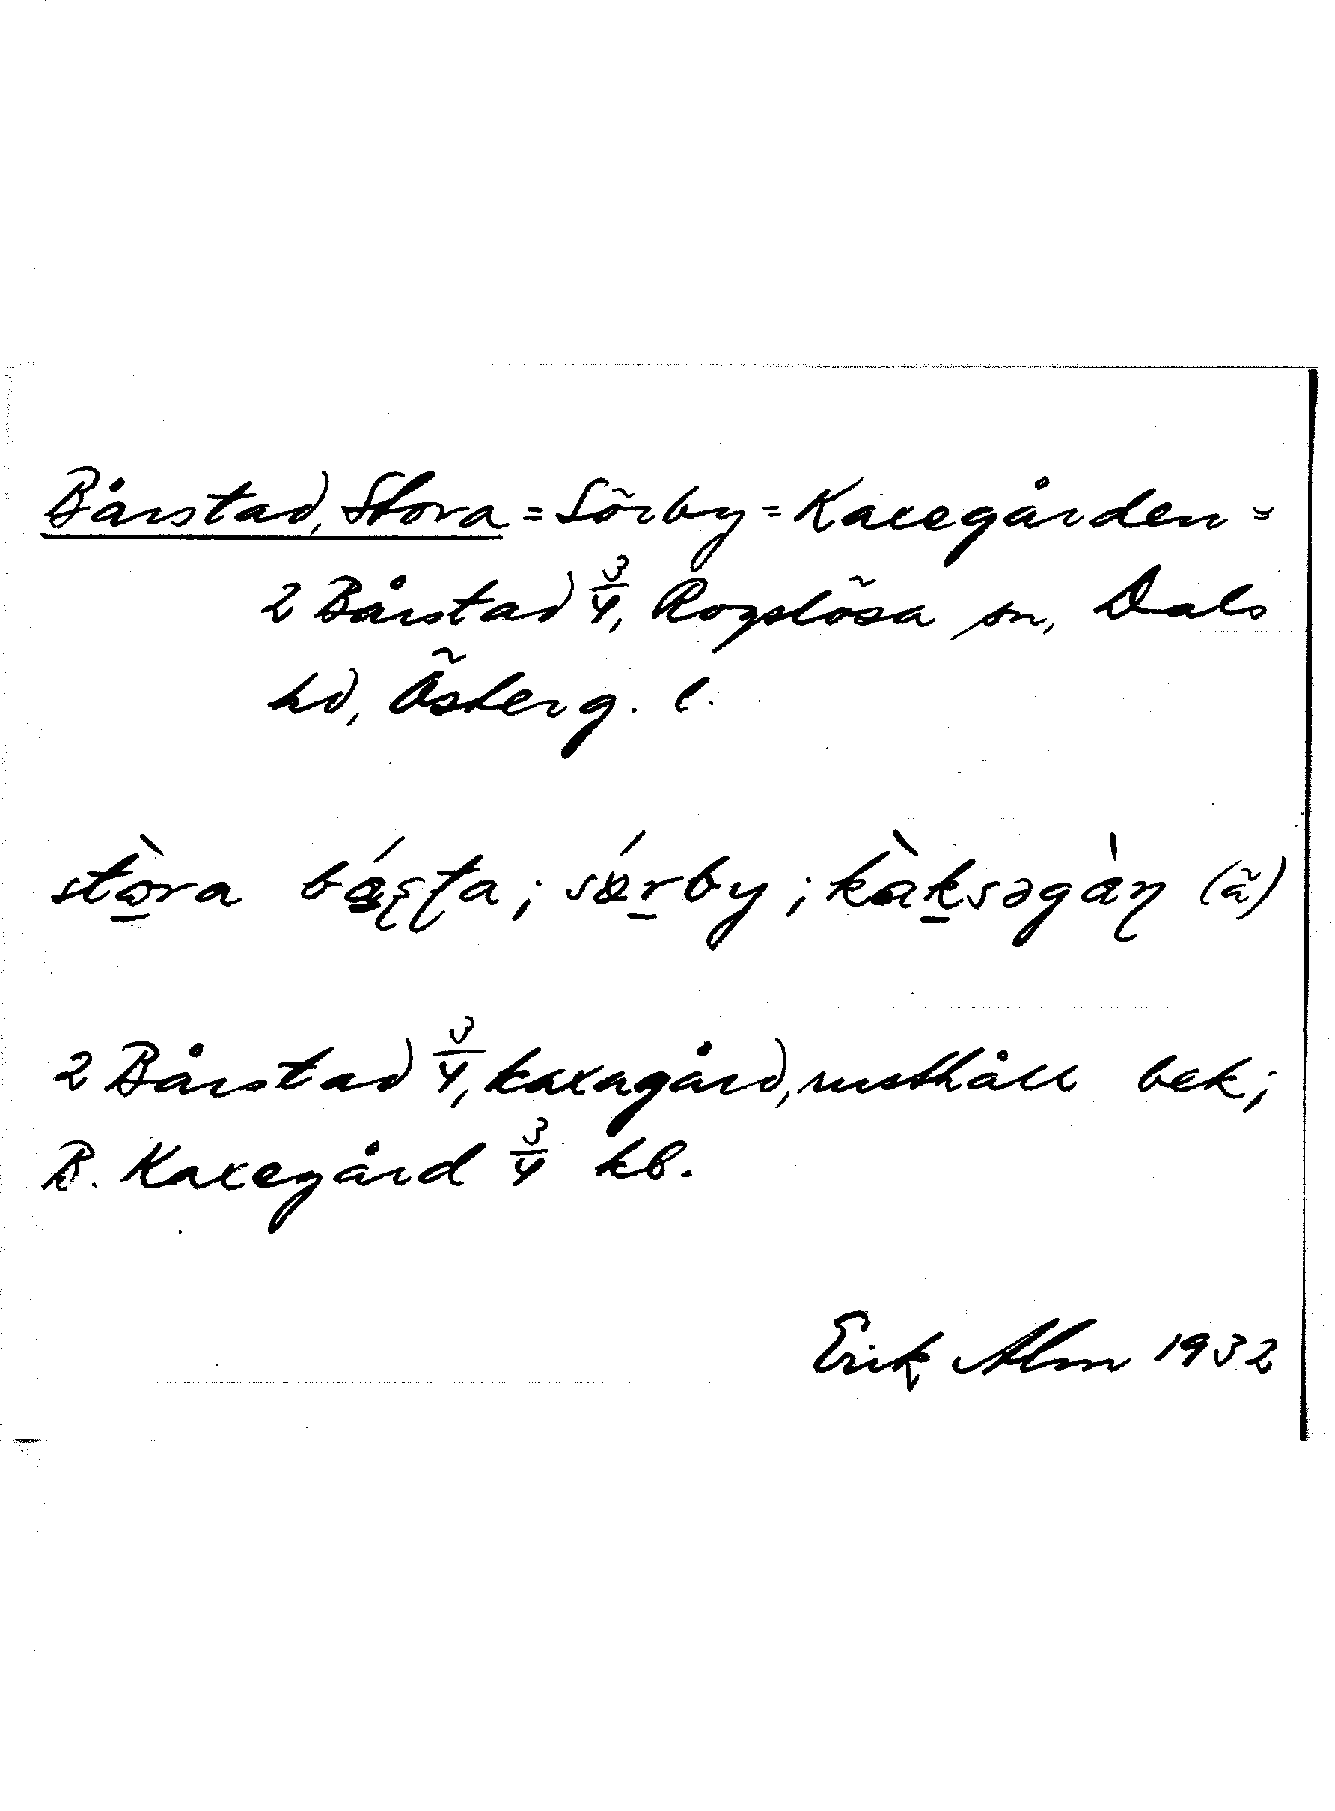 Bårstad, Stora = Sörby = Kaxegården =
2 Bårstad 3/4, Rogslösa sn, Dals
hd, Österg. l.
stò̠ra bá̠ʂʈa; sǿ̠r̠by; kàk̠səgàɳ (ã)
2 Bårstad 3/4, kaxagård, rusthåll bek;
B. Kaxegård 3/4 kb.
Erik Alm 1932